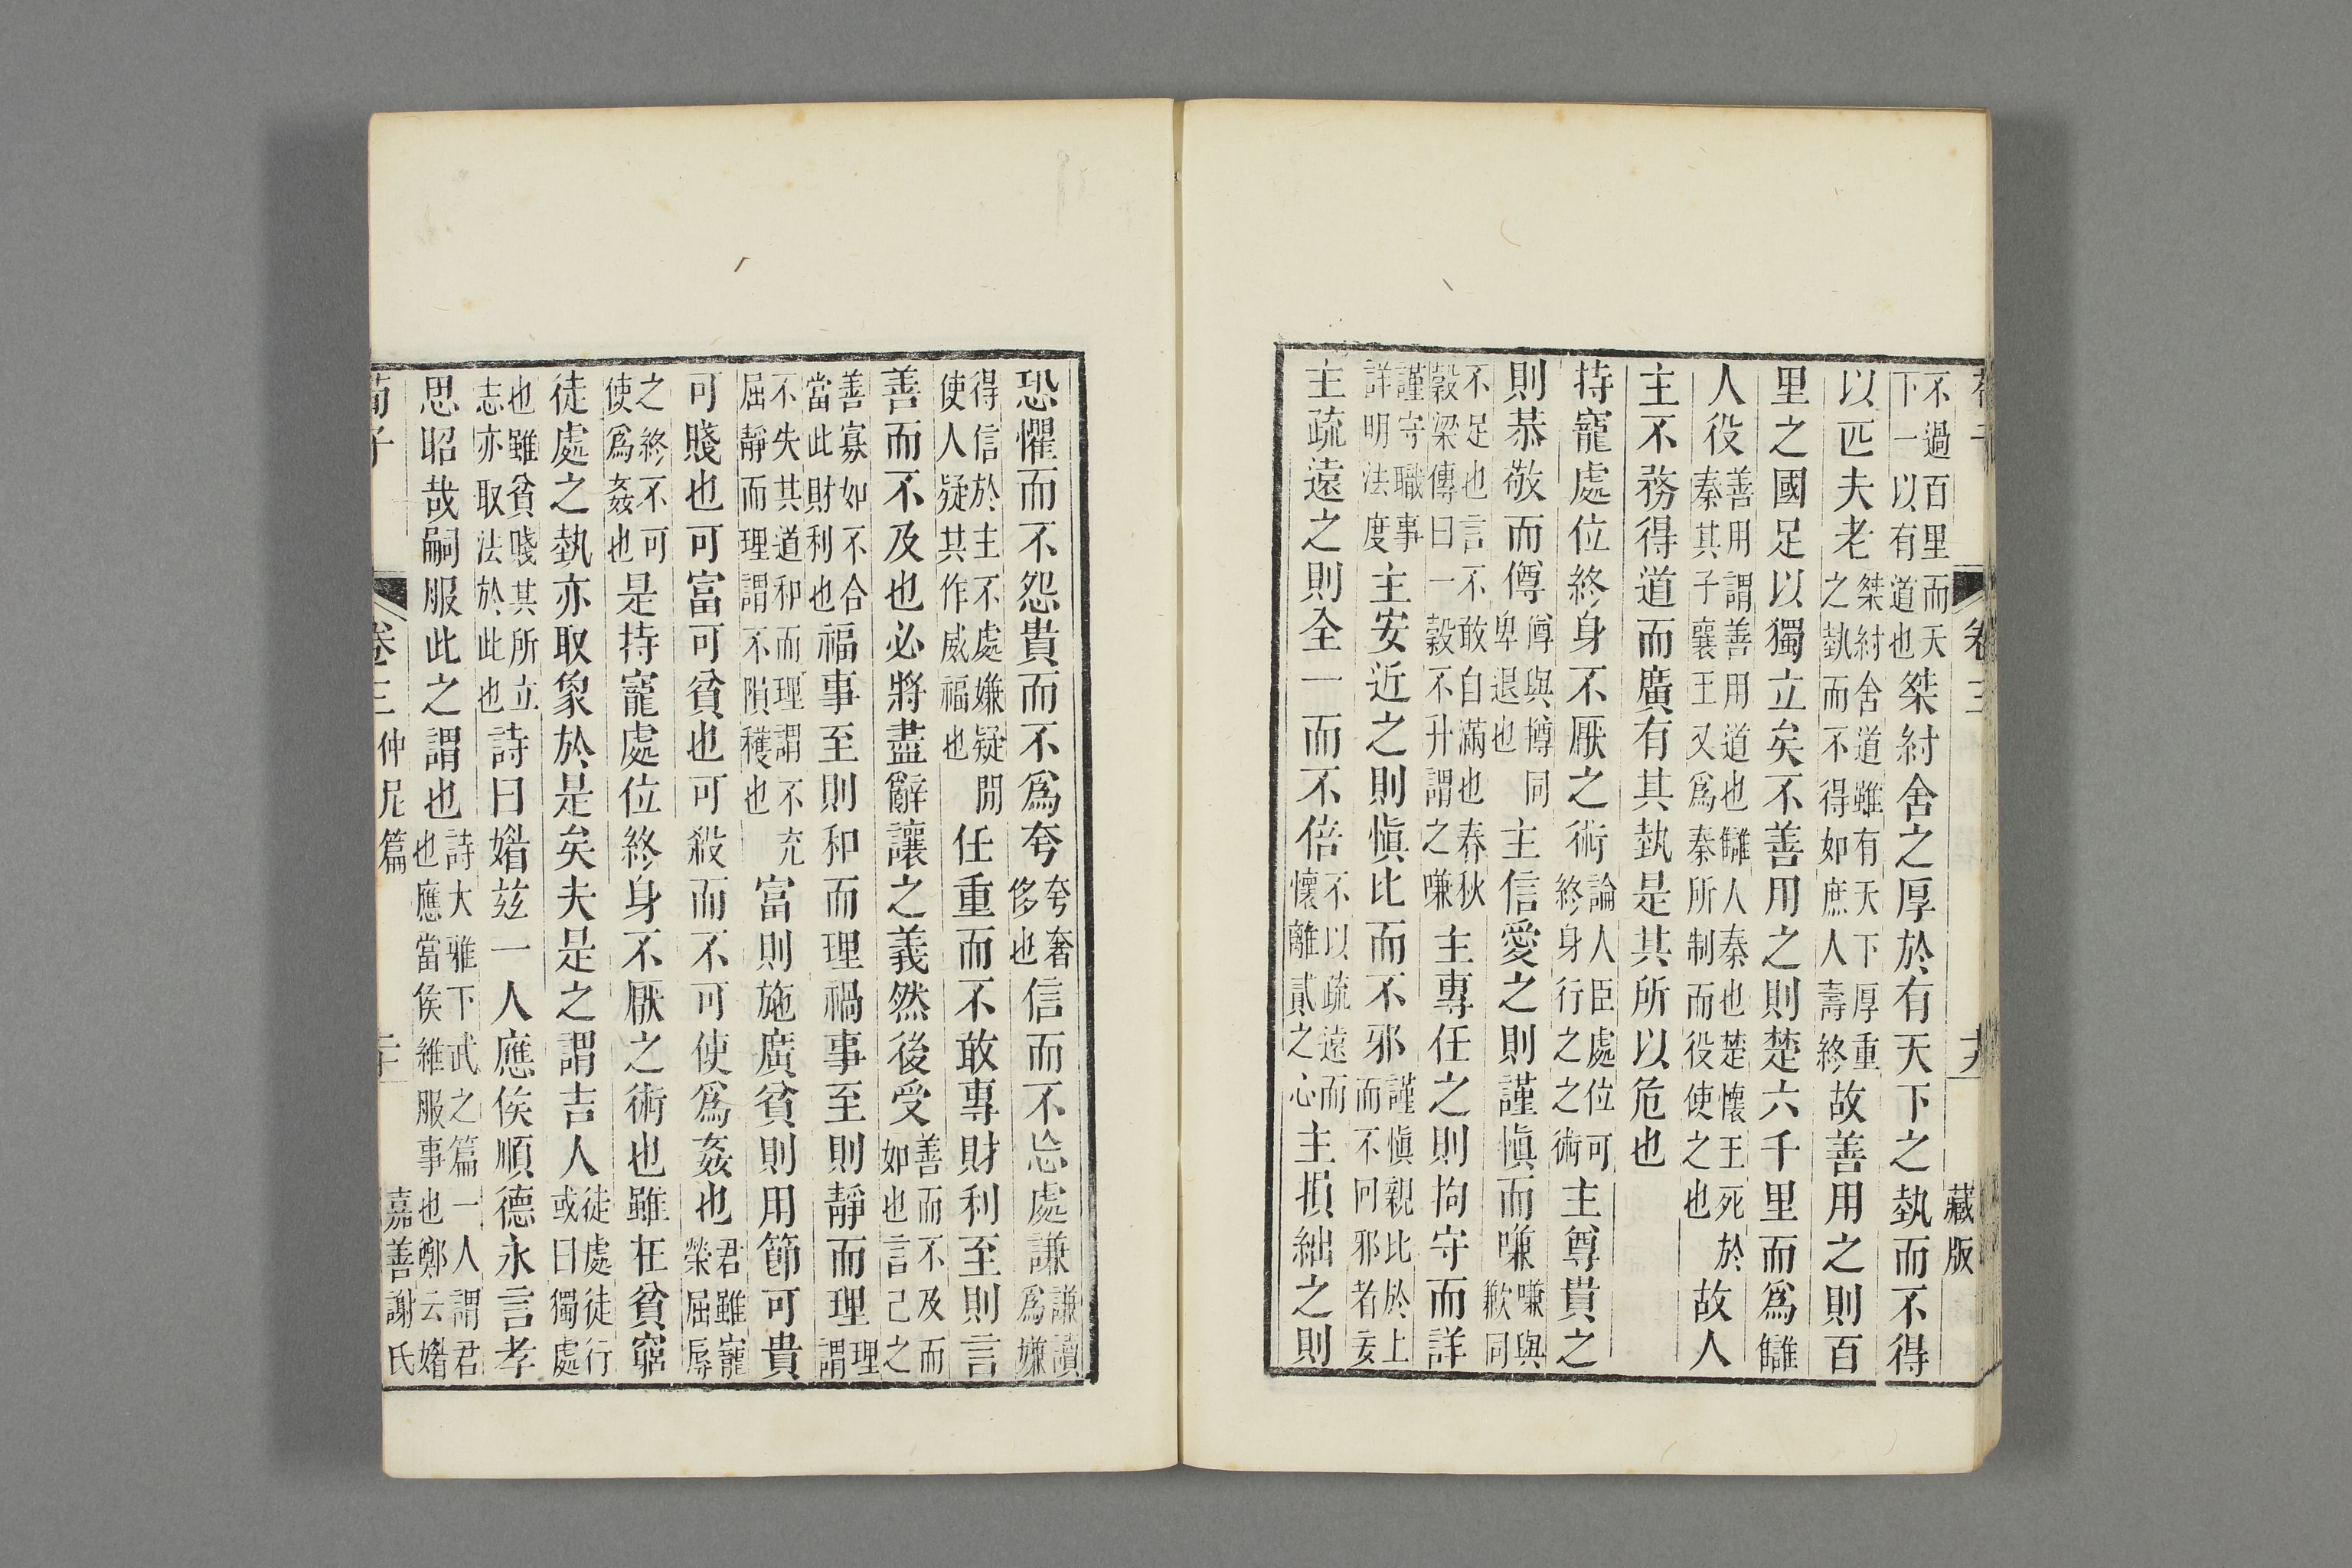 不過百里而天
下一以有道也桀紂舍之厚於有天下之埶而不得
以匹夫老桀紂舍道雖有天下厚重
之埶而不得如庶人壽終故善用之則百
里之國足以獨立矣不善用之則楚六千里而爲讎
人役善用謂善用道也讎人秦也楚懷王死於
秦其子襄王又爲秦所制而役使之也故人
主不務得道而廣有其埶是其所以危也
持寵處位終身不厭之術論人臣處位可
終身行之之術主尊貴之
則恭敬而僔僔與撙同
卑退也主信愛之則謹愼而嗛嗛與
歉同
不足也言不敢自滿也春秋
穀梁傳曰一穀不升謂之嗛主專任之則拘守而詳
謹守職事
詳明法度主安近之則愼比而不邪謹愼親比於上
而不回邪者妄
主疏遠之則全一而不倍不以疏遠而
懷離貳之心主損絀之則
藏版
恐懼而不怨貴而不爲夸夸奢
侈也信而不忘處謙謙讀
爲嫌
得信於主不處嫌疑閒
使人疑其作威福也任重而不敢專財利至則言
善而不及也必將盡辭讓之義然後受善而不及而
如也言己之
善寡如不合
當此財利也福事至則和而理禍事至則靜而理理
謂
不失其道和而理謂不充
屈靜而理謂不隕穫也富則施廣貧則用節可貴
可賤也可富可貧也可殺而不可使爲姦也君雖寵
榮屈辱
之終不可
使爲姦也是持寵處位終身不厭之術也雖在貧窮
徒處之埶亦取象於是矣夫是之謂吉人徒處徒行
或曰獨處
也雖貧賤其所立
志亦取法於此也詩曰媚茲一人應侯順德永言孝
思昭哉嗣服此之謂也詩大雅下武之篇一人謂君
也應當侯維服事也鄭云媚
荀子 卷三仲尼篇 二十 嘉善謝氏